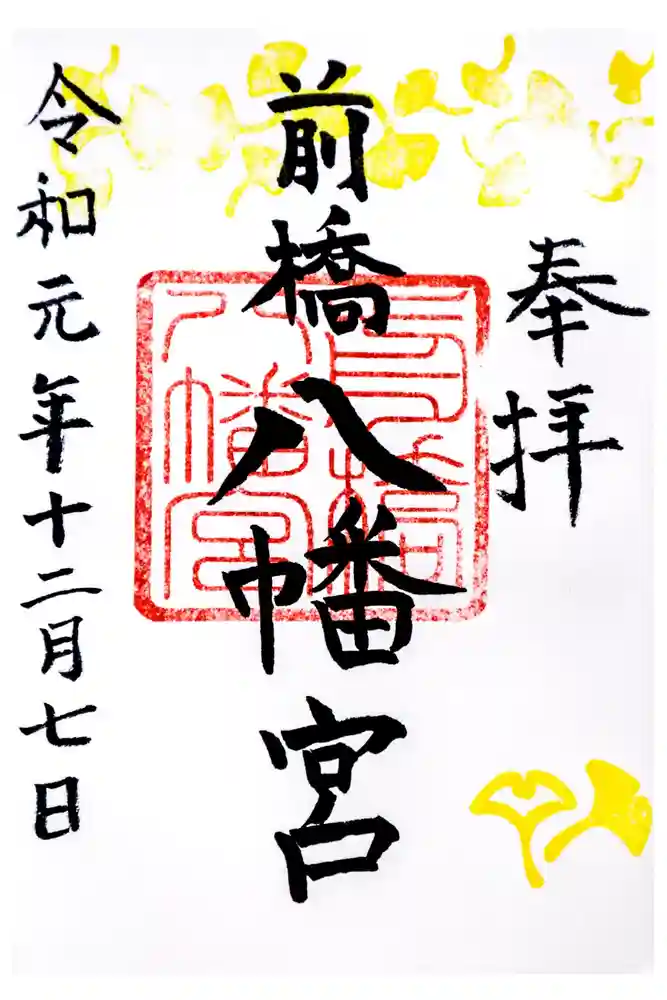 奉拝
前橋八幡宮
前橋八幡宮
令和元年十二月七日